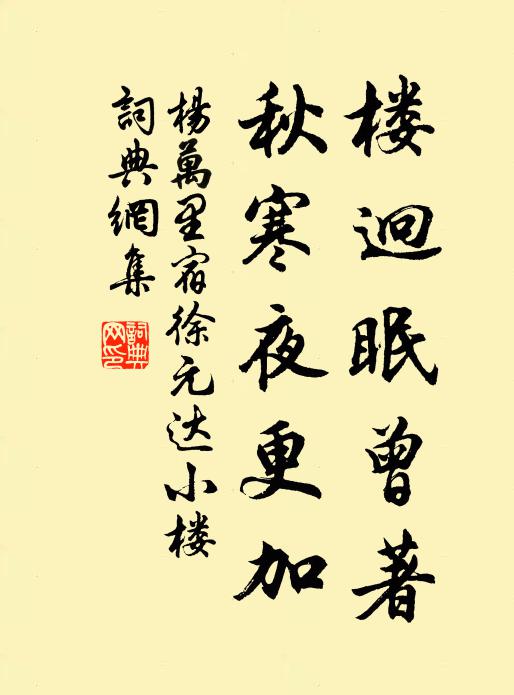 楼迥眠曾著
秋寒夜更加
楊萬里宿徐元达小楼
詞典網集
詞典网印